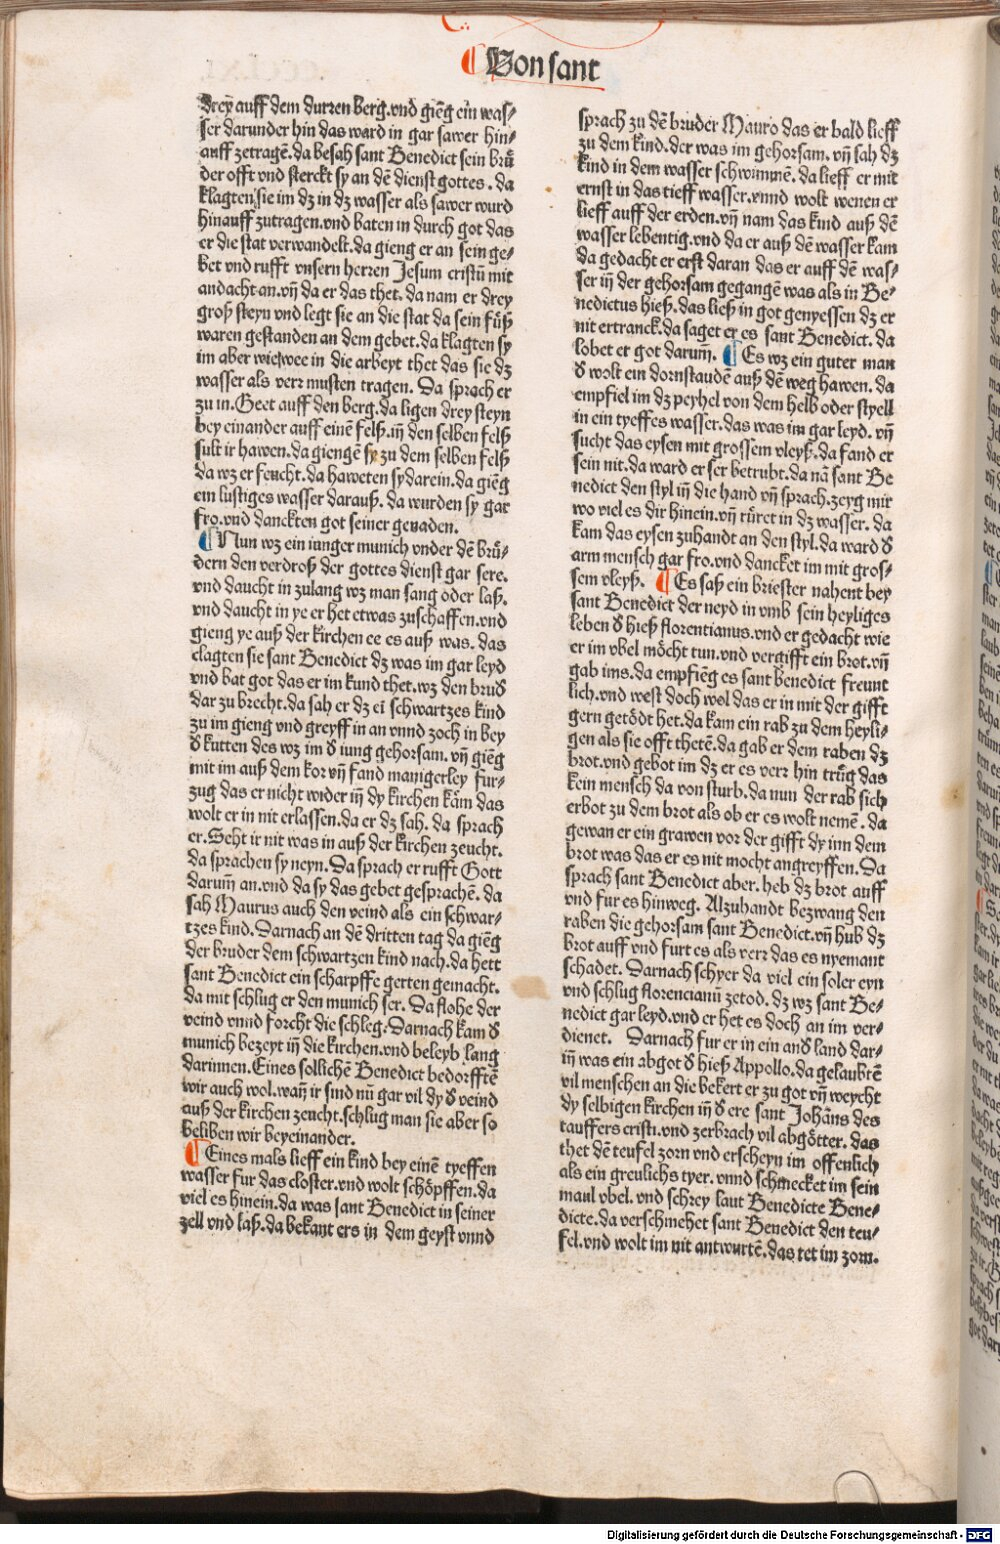 ¶ Von sant
drey auff dem durren berg.vnd giēg ein was⸗
ser darunder hin das ward in gar sawer hin⸗
auff zetragē.da besah sant Benedict sein brů
der offt vnd sterckt sy an dē dienst gottes. da
klagten sie im dz in dz wasser als sawer wurd
hinauff zutragen.vnd baten in durch got das
er die stat verwandelt.da gieng er an sein ge⸗
bet vnd rufft vnsern herren Jesum cristū mit
andacht an.vn̄ da er das thet. da nam er drey
groß steyn vnd legt sie an die stat da sein fůß
waren gestanden an dem gebet.da klagten sy
im aber wie wee in die arbeyt thet das sie dz
wasser als verr musten tragen. Da sprach er
zu in.Geet auff den berg.da ligen drey steyn
bey einander auff einē felß.in̄ den selben felß
sult ir hawen.da giengē sy zu dem selben felß
da wz er feucht.da haweten sy darein.da giēg
ein lustiges wasser darauß. da wurden sy gar
fro.vnd danckten got seiner genaden.
¶ Nun wz ein iunger munich vnder dē brů⸗
dern den verdroß der gottes dienst gar sere.
vnd daucht in zulang wz man sang oder laß.
vnd daucht in ye er het etwas zuschaffen.vnd
gieng ye auß der kirchen ee es auß was. das
clagten sie sant Benedict dz was im gar leyd
vnd bat got das er im kund thet.wz den brud
dar zu brecht.da sah er dz eī schwartzes kind
zu im gieng vnd greyff in an vnnd zoch in bey
d kutten des wz im d iung gehorsam. vn̄ giēg
mit im auß dem kor vn̄ fand manigerley fur⸗
zug das er nicht wider in̄ dy kirchen kåm das
wolt er in nit erlassen.da er dz sah. da sprach
er.Seht ir nit was in auß der kirchen zeucht.
da sprachen sy neyn. Da sprach er rufft Gott
darum̄ an.vnd da sy das gebet gesprachē. da
sah Maurus auch den veind als ein schwar⸗
tzes kind. Darnach an dē dritten tag da giēg
der bruder dem schwartzen kind nach.da hett
sant Benedict ein scharpffe gerten gemacht.
da mit schlug er den munich ser. Da flohe der
veind vnnd forcht die schleg. Darnach kam d
munich bezeyt in̄ die kirchen.vnd beleyb lang
darinnen. Eines sollichē Benedict bedorfftē
wir auch wol.wan̄ ir sind nū gar vil dy d veind
auß der kirchen zeucht.schlug man sie aber so
beliben wir beyeinander.
¶ Eines mals lieff ein kind bey einē tyeffen
wasser fur das closter.vnd wolt schöpffen.da
viel es hinein.da was sant Benedict in seiner
zell vnd laß.da bekant ers in dem geyst vnnd
sprach zu dē bruder Mauro das er bald lieff
zu dem kind.der was im gehorsam. vn̄ sah dz
kind in dem wasser schwimmē. da lieff er mit
ernst in das tieff wasser.vnnd wolt wenen er
lieff auff der erden.vn̄ nam das kind auß dē
wasser lebentig.vnd da er auß dē wasser kam
da gedacht er erst daran das er auff dē was⸗
ser in̄ der gehorsam gegangē was als in Be⸗
nedictus hieß.das ließ in got genyessen dz er
nit ertranck.da saget er es sant Benedict. da
lobet er got darum̄. ¶ Es wz ein guter man
d wolt ein dornstaudē auß dē weg hawen. da
empfiel im dz peyhel von dem helb oder styell
in ein tyeffes wasser.das was im gar leyd. vn̄
sucht das eysen mit grossem vleyß.da fand er
sein nit.da ward er ser betrubt.da nā sant Be
nedict den styl in̄ die hand vn̄ sprach.zeyg mir
wo viel es dir hinein.vn̄ růret in dz wasser. da
kam das eysen zuhandt an den styl.da ward d
arm mensch gar fro.vnd dancket im mit gros⸗
sem vleyß. ¶ Es saß ein briester nahent bey
sant Benedict der neyd in vmb sein heyliges
leben d hieß florentianus.vnd er gedacht wie
er im vbel möcht tun.vnd vergifft ein brot.vn̄
gab ims.da empfieng es sant benedict freunt
lich.vnd west doch wol das er in mit der gifft
gern getödt het.da kam ein rab zu dem heyli⸗
gen als sie offt thetē.da gab er dem raben dz
brot.vnd gebot im dz er es verr hin trůg das
kein mensch da von sturb.da nun der rab sich
erbot zu dem brot als ob er es wolt nemē. da
gewan er ein grawen vor der gifft dy inn dem
brot was das er es nit mocht angreyffen. Da
sprach sant Benedict aber. heb dz brot auff
vnd fur es hinweg. Alzuhandt bezwang den
raben die gehorsam sant Benedict.vn̄ hub dz
brot auff vnd furt es als verr das es nyemant
schadet. Darnach schyer da viel ein soler eyn
vnd schlug florencianū zetod. dz wz sant Be⸗
nedict gar leyd.vnd er het es doch an im ver⸗
dienet. Darnach fur er in ein and land dar⸗
in̄ was ein abgot d hieß Appollo.da gelaubtē
vil menschen an die bekert er zu got vn̄ weycht
dy selbigen kirchen in̄ d ere sant Johān̄s des
tauffers cristi.vnd zerbrach vil abgötter. das
thet dē teufel zorn vnd erscheyn im offenlich
als ein greulichs tyer. vnnd schmecket im sein
maul vbel. vnd schrey laut Benedicte Bene⸗
dicte.da verschmehet sant Benedict den teu⸗
fel.vnd wolt im nit antwurtē.das tet im zorn.
Digitalisierung gefördert durch die Deutsche Forschungsgemeinschaft - DFG